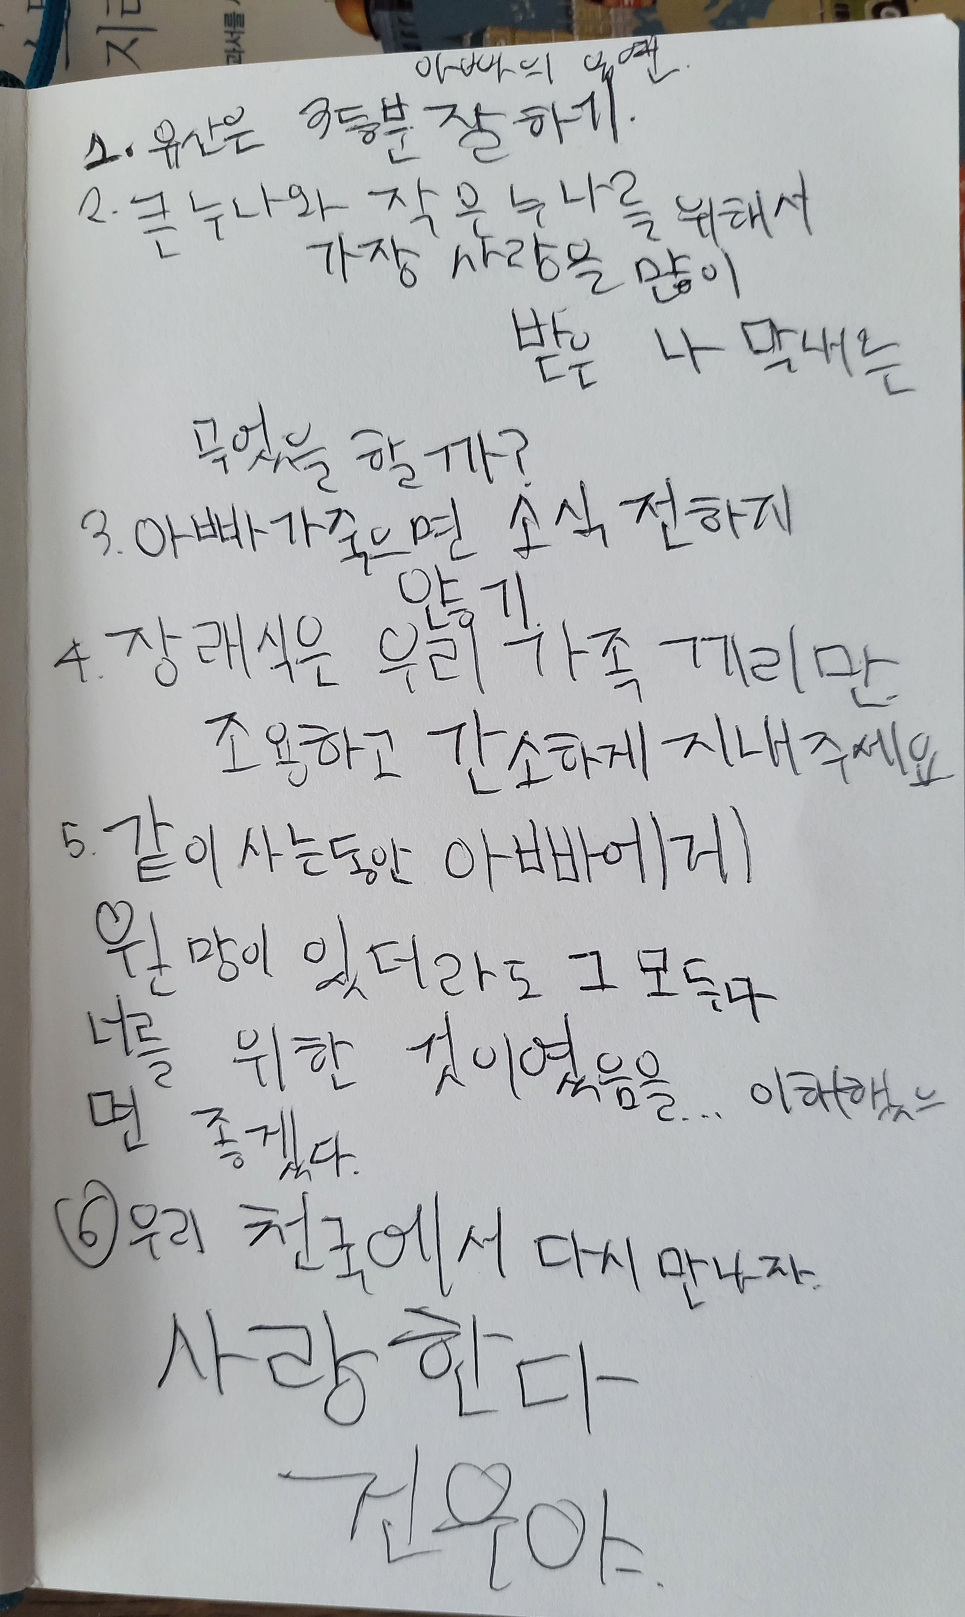 지
과서를
아빠의 유언.
1. 유산은 3등분 잘하기.
2. 큰누나와 작은누나를 위해서
가장 사랑을 많이
받은 나 막내는
무엇을 할까?
3. 아빠가죽으면 소식 전하지
않기
4. 장래식은 우리 가족 끼리만
조용하고 간소하게 지내주세요
5. 같이 사는동안 아빠에게
원망이 있더라도 그 모두다
너를 위한 것이였음을... 이해했으
면 좋겠다.
6 우리 천국에서 다시 만나자.
사랑한다
건우야.